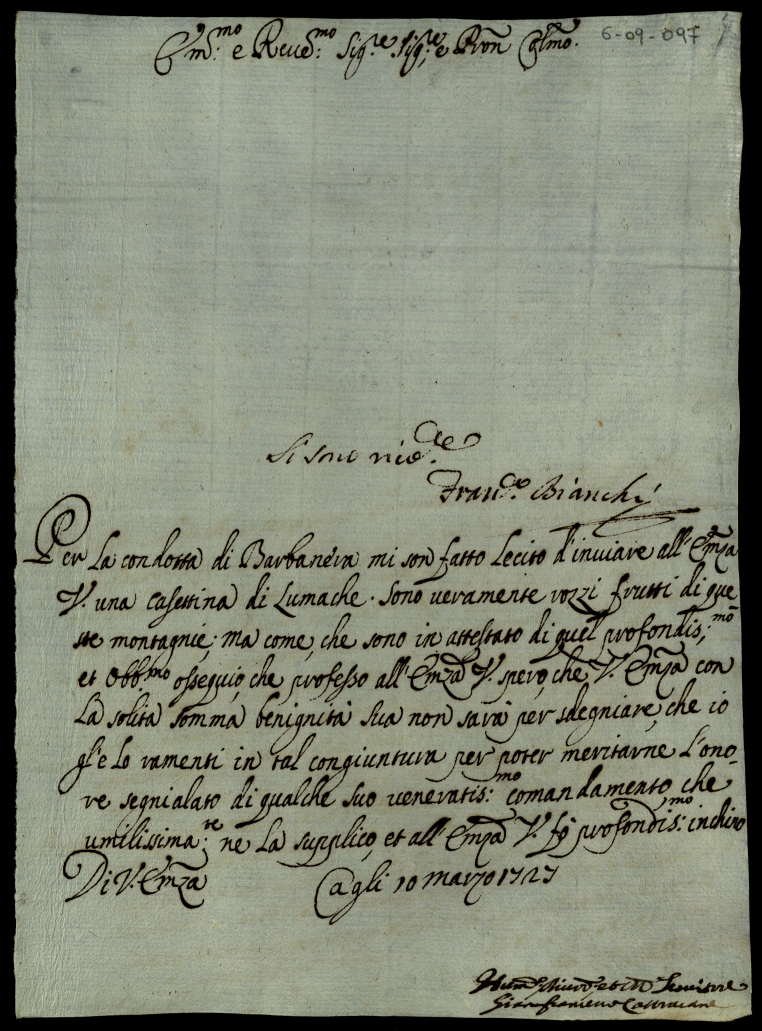 Em:mo e Reue:mo Sig:re Sig:re e Pron Colmo.
6-09-097
Si sono rice
Fran:co Bianchi
Per La condotta di Barbanera mi son fatto Lecito d'inuiare all'Emza
V. una Casettina di Lumache. Sono ueramente rozzi frutti di que
ste montagnie; ma come, che sono in attestato di quel profondis:mo
et Obb:mo ossequio, che professo all'Emza V. spero, che V. Emza con
La solita somma benignità sua non sarà per sdegniare, che io
gl'e Lo ramenti in tal congiuntura per poter meritarne L'ono-
re segnialato di qualche suo ueneratis:mo comandamento, che
umilissima:te ne La supplico, et all'Emza V. fo profondis:mo inchino
Di V. Emza Cagli 10 Marzo 1727
Hum:o Diuo et Seruitore
Gianfrancesco Castracane